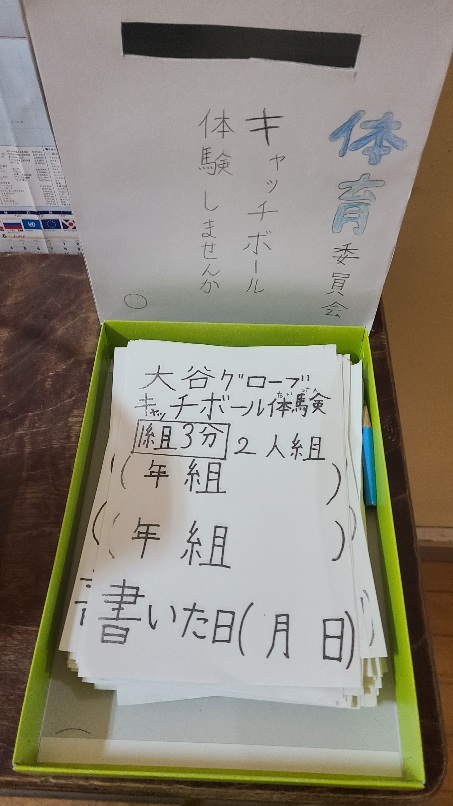 体育委員会
キャッチボール
体験しませんか
大谷グローブ
キャッチボール体験
たいけん
1組3分 2人組
(年 組 )
(年 組 )
書いた日(月 日)